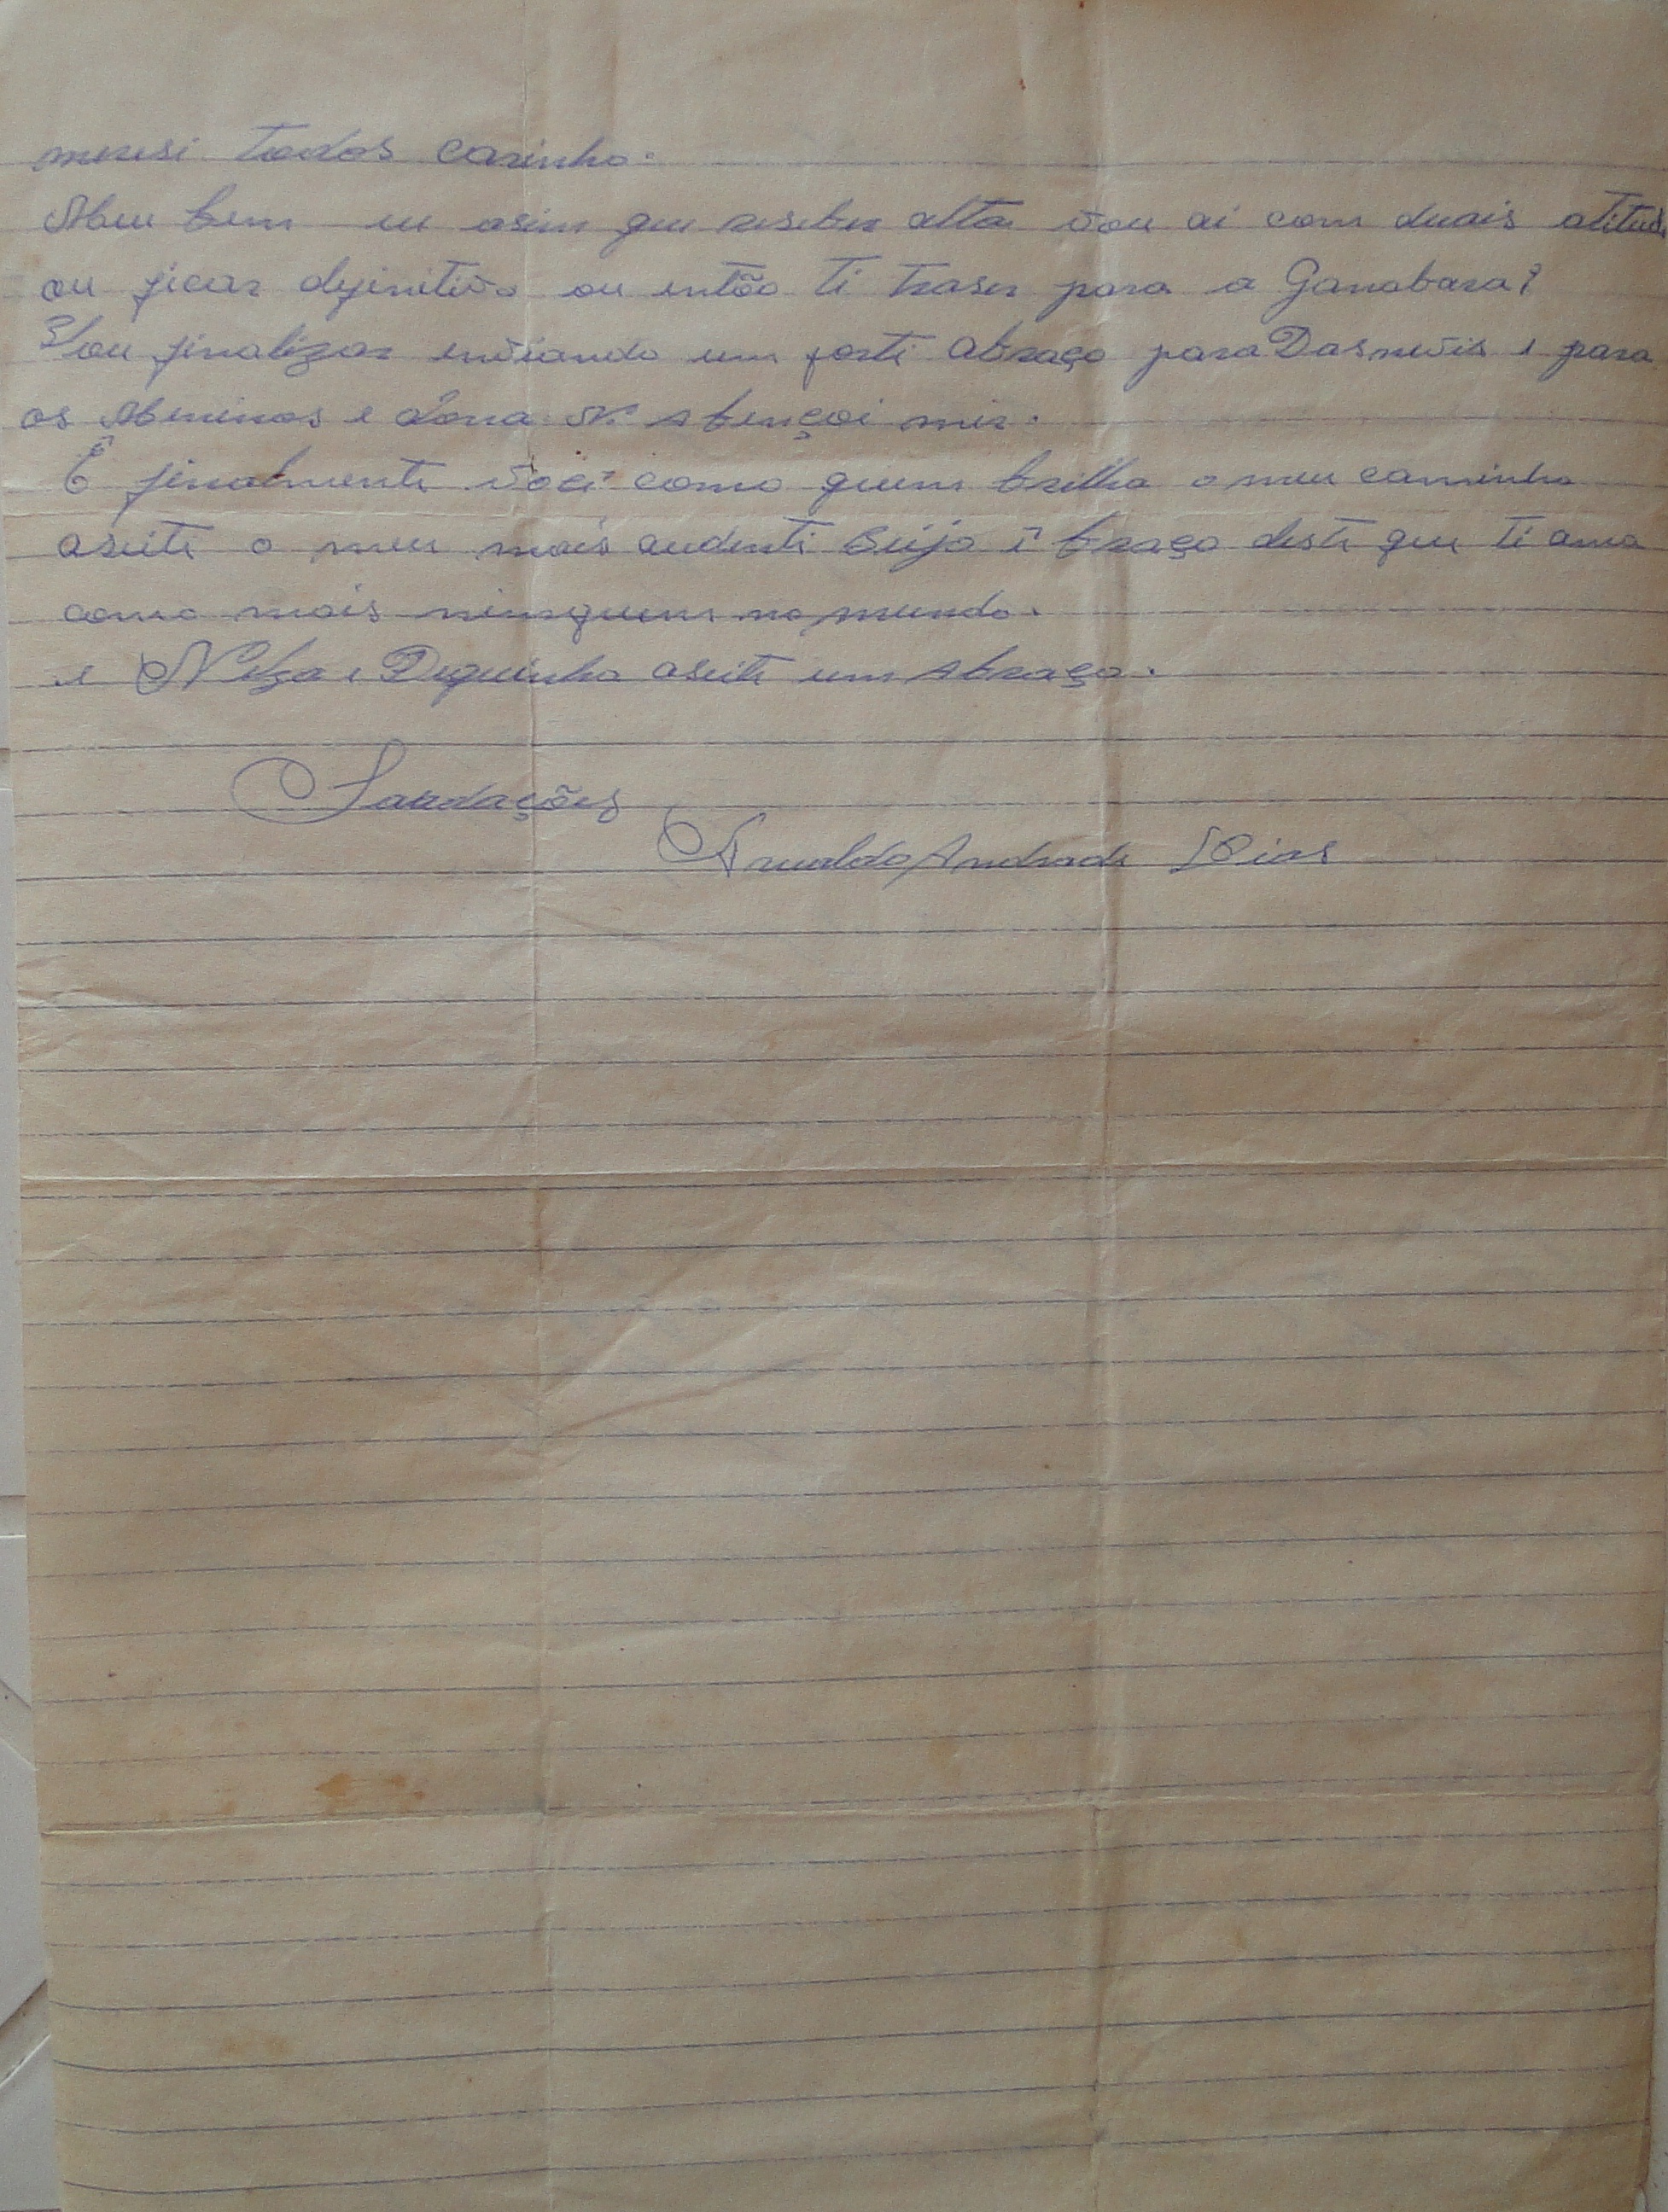 meresi todos carinho.
Meu bem eu asim que reseber alta vou ai com duais atitud
ou ficar definitivo ou então ti traser para a Ganabara?
Vou finalizar enviando um forti abraço para Dasnevis e para
os Meninos e dona abençoi
E finalmenti voce como quem brilha o meu caminho
aseite o meu mais audenti beijo e braço desti que ti ama
como mais ninguem no mundo.
e Nelza e Deguinho aseite um abraço.
Saudações
Arnaldo Andrade Dias